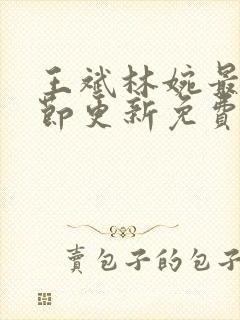 王斌林婉最
節更新免費
賣包子的包子